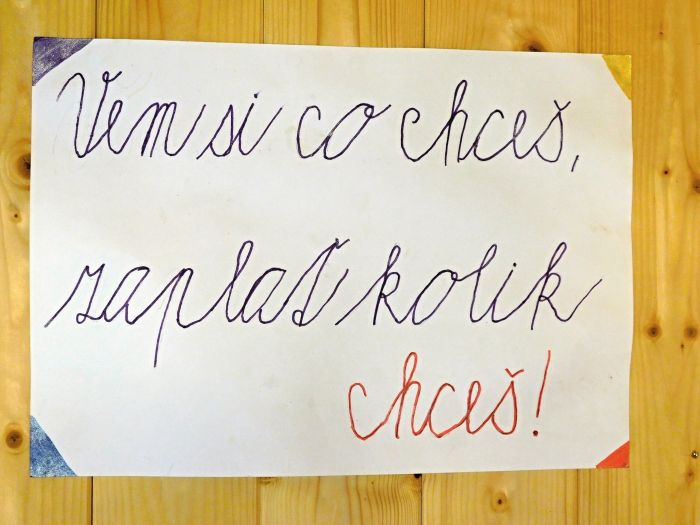 Vem si co chceš,
zaplať kolik
chceš!